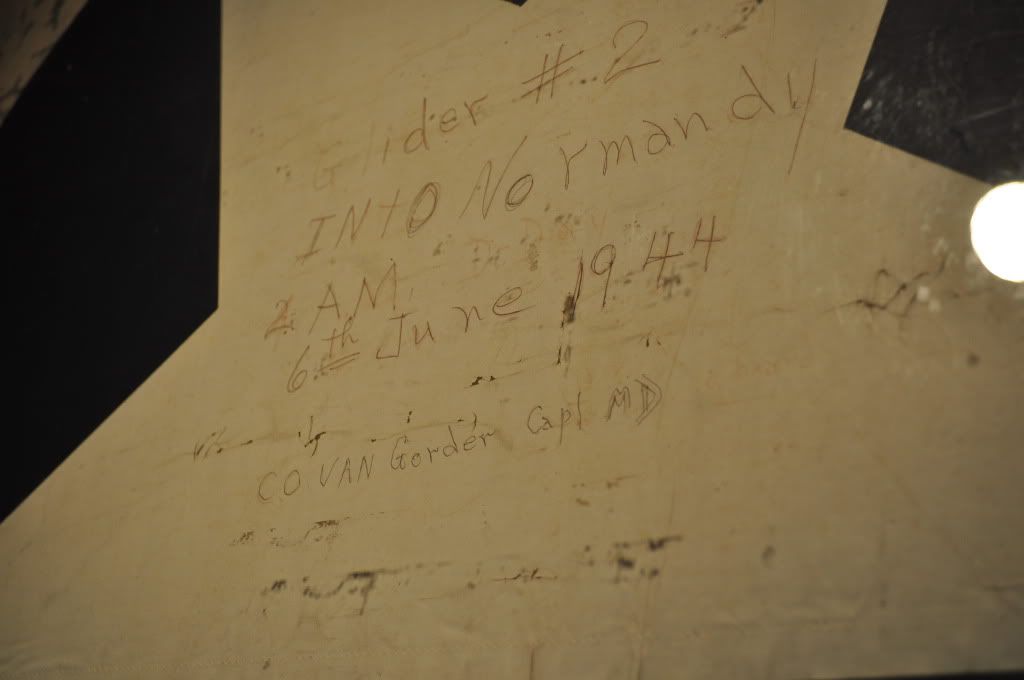 Glider # 2
INTO Normandy
2 AM.
6th June 1944
C.O VAN Gorder Capt MD